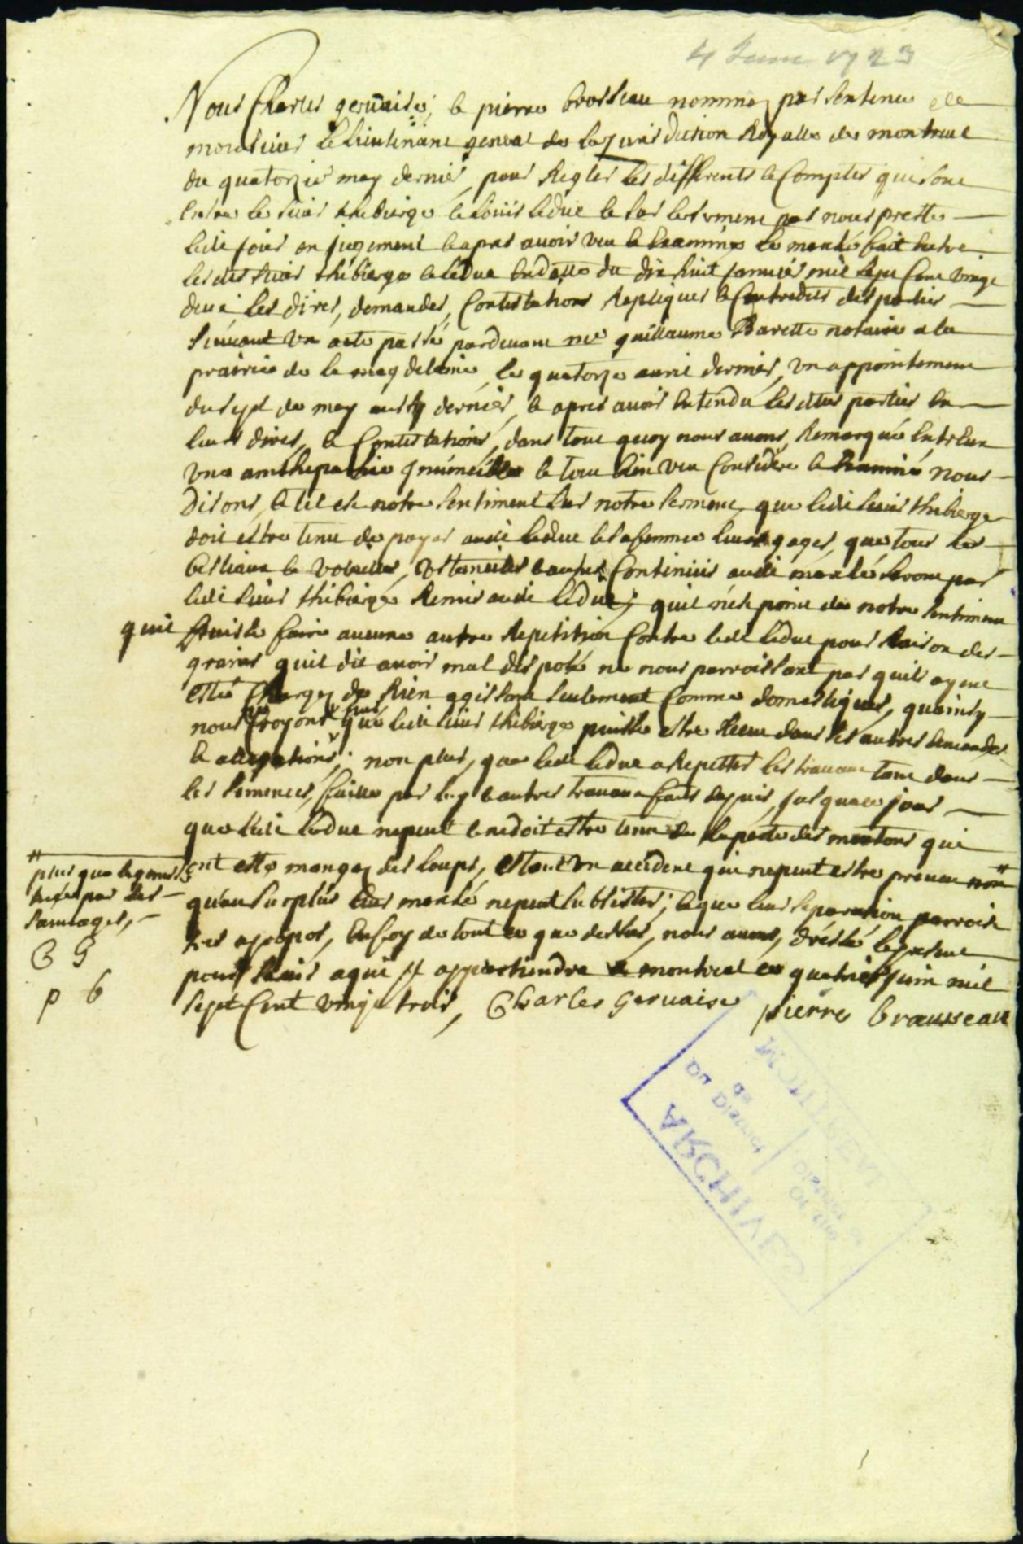 4 Juin 1723
Nous Charles gervaise, & pierre brosseau nommez par sentence de
monsieur le Lieutenant general de la Jurisdiction Royalle de montreal
du quatorzie may dernier, pour Regler les differents & Comptes qui sont
Entre le sieur thiberge & Loüis leduc & sur le serment par nous preste
ledit jour en jugement & apres avoir veu & Examiné le marché fait Entre
lesdits sieur thiberge & leduc En datte du dix huit janvier mil sept Cent vingt
deux les dires, demandes, Contestations Repliques & Contredits des parties
suivant Un acte passé pardevant me guillaume Barette notaire a la
prairie de la magdelaine, le quatorze avril dernier, Un appointement
du sept de may aussy dernier, & apres avoir Entendu lesdites parties En
leurs dires, & Contestations, dans tout quoy nous avons Remarqué Entr'Eux
Une anthepathie & le tout bien veu Consideré & Examiné nous
Disons, & tel est notre sentiment sur notre serment, que ledit sieur thiberge
doit estre tenu de payer audit leduc & sa femme leurs gages, que tous les
bestiaux & volailles, Ustancilles & autres Contenües audit marché seront par
ledit sieur thiberge Remis audit leduc; quil n'est point de notre sentiment
quil puisse faire aucune autre Repetition Contre ledit leduc pour Raison des
grains quil dit avoir mal disposé ne nous parroissant pas quils ayent
esté Chargez de Rien agissant seulement Comme domestiques, quainsy
nous ne Croyons pas que ledit sieur thiberge puisse estre Receu dans ses autres demandes
& allegations; non plus, que ledit leduc a Repetter les travaux tant dans
les semences, faittes par luy & autres travaux faits depuis, jusquace jour
que ledit leduc ne peut & ne doit estre tenu de la perte des moutons qui
ont esté mangez des loups, estant Un accident qui ne peut estre preveu non
plus que le
par les
sauvages,
C G
p b
quau surplus leur marché ne peut subsister; & que leur separation parroist
tres apropos, En foy de tout ce que dessus, nous avons, dressé le present
pour servir a qui il appartiendra a montreal ce quatrie juin mil
sept Cent vingt trois, Charles Gervaise pierre brausseau
ARCHIVES
DU DISTRICT
de
MONTREAL